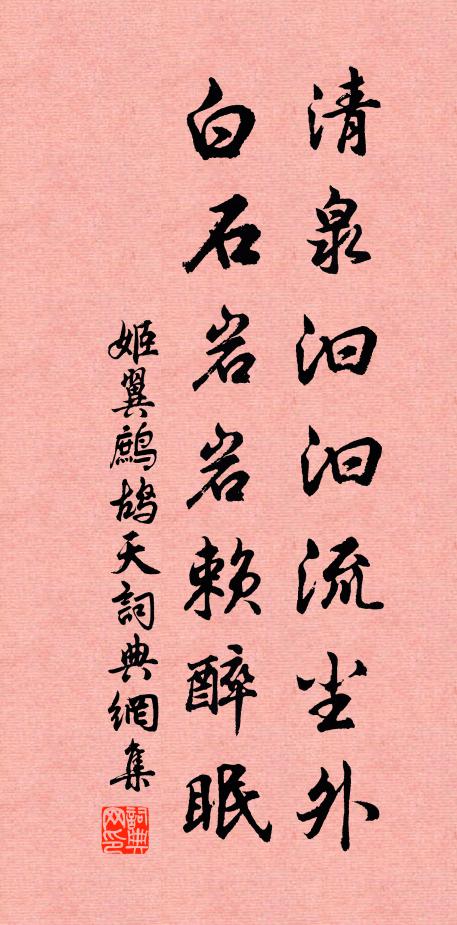 清泉汩汩流尘外
白石岩岩赖醉眠
姬翼鹧鸪天詞典網集
詞典网印